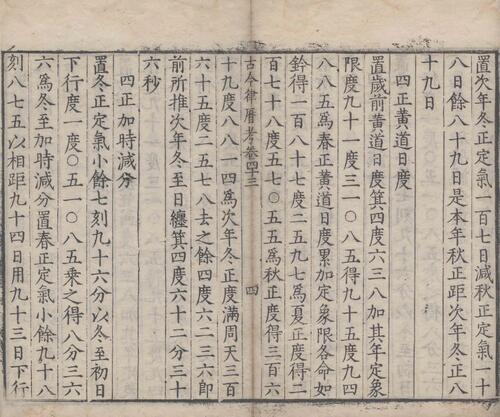 置次年冬正定氣一百七日減秋正定氣一十
八日餘八十九日是本年秋正距次年冬正八
十九日
四正黃道日度
置歲前黃道日度箕四度六三八加其年定象
限度九十一度三一〇八五得九十五度九四
八八五爲春正黃道日度累加定象限各命如
鈐得一百八十七度二五九七爲夏正度得二
百七十八度五七〇五五爲秋正度得三百六
古今律曆考卷四十三
四
十九度八八一四爲次年冬正度滿周天三百
六十五度二五七八去之餘四度六二三六卽
前所推次年冬至日纏箕四度六十二分三十
六秒
四正加時減分
置冬正定氣小餘七刻九十六分以冬至初日
下行度一度〇五一〇八五乘之得八分三六
六爲冬至加時減分置春正定氣小餘九十八
刻八七五以相距九十四日用九十三日下行